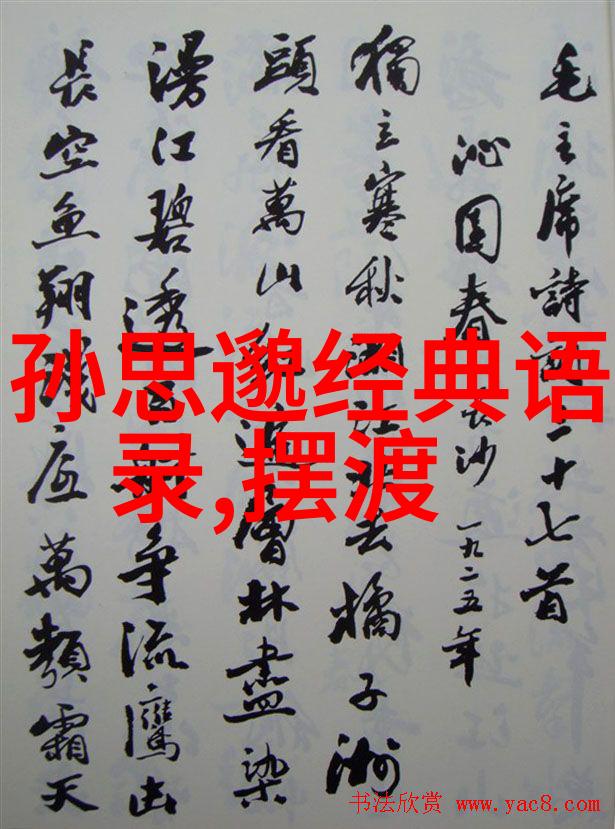 毛主席詩詞三十七首
沁园春 長沙 一九二五年
獨立寒秋湘江北去橘子洲
頭看萬山紅遍層林盡染
漫江碧透百舸争流鷹击
長空魚翔淺底萬類霜天
孙思邈经典语
录,摆渡
书法欣赏 www.yac8.com